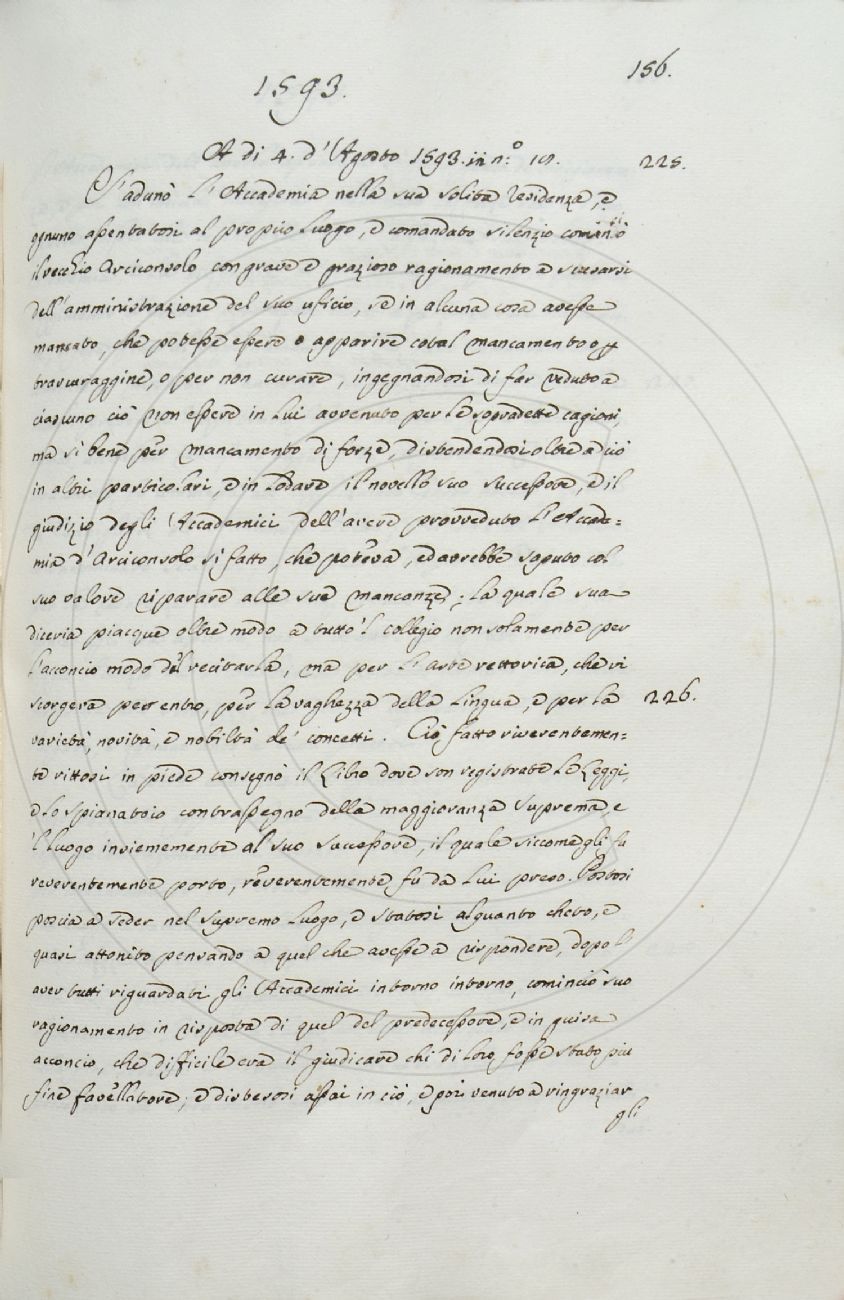 156.
1593.
A di 4. d'Agosto 1593. in n.° 19. 225.
S'adunò l'Accademia nella sua solita residenza, e
ognuno assentatosi al proprio luogo, e comandato silenzio cominciò
il vecchio Arciconsolo con grave e grazioso ragionamento a scusarsi
dell'amministrazione del suo uficio, se in alcuna cosa avesse
mancato, che potesse essere o apparire cotal mancamento o p
trascuraggine, o per non curare, ingegnandosi di far veduto a
ciascuno ciò non essere in lui avvenuto per le sopradette cagioni,
ma si bene per mancamento di forze, distendendosi oltre a ciò
in altri particolari, e in lodare il novello suo successore, e il
giudizio degli Accademici dell'avere provveduto l'Accade=
mia d'Arciconsolo sì fatto, che poteva, ed avrebbe saputo col
suo valore riparare alle sue mancanze; la quale sua
diceria piacque oltre modo a tutto 'l collegio non solamente per
l'acconcio modo del recitarla, ma per l'arte rettorica, che vi
scorgera per entro, per la vaghezza della lingua, e per la 226.
varietà, novità, e nobiltà de' concetti. Ciò fatto riverentemen=
te rittosi in piede consegnò il Libro dove son registrate le Leggi,
e lo spianatoio contrassegno della maggioranza suprema, e
'l luogo insiememente al suo successore, il quale siccome gli fu
reverentemente porto, reverentemente fu da lui preso. Postosi
poscia a seder nel supremo luogo, e statosi alquanto cheto, e
quasi attonito pensando a quel che avesse a rispondere, dopo l
aver tutti riguardati gli Accademici intorno intorno, cominciò suo
ragionamento in risposta di quel del predecessore, e in guisa
acconcio, che difficile era il giudicare chi di loro fosse stato più
fine favellatore; e distesosi assai in ciò, e poi venuto a ringraziar
gli